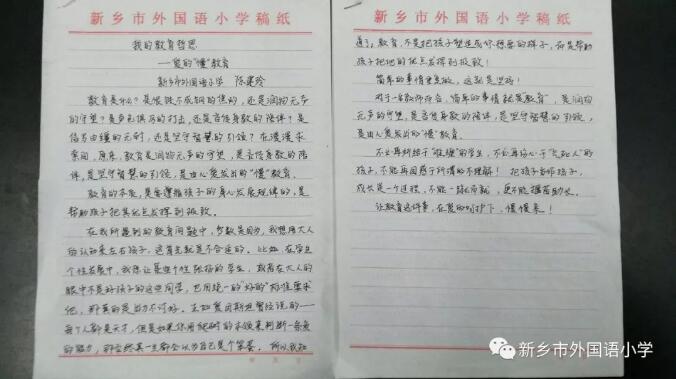 新乡市外国语小学稿纸
我的教育哲思
——爱的“慢”教育
新乡市外国语小学 陈建玲
教育是什么？是恨铁不成钢的焦灼，还是润物无声
的守望？是声色俱厉的打击，还是言传身教的陪伴？是
的无奈，还是坚守智慧的引领？在漫漫求
索间，原来，教育是润物无声的守望，是言传身教的陪
伴，是坚守智慧的引领，是由心发出的“慢”教育。
教育的本质，是要遵循孩子的身心发展规律的，是
帮助孩子把其优点发挥到极致。
在我所遇到的教育问题中，多数是因为，我想用大人
的认知来左右孩子，这首先就是不合适的。比如，在学生
个性发展中，我总让某些个性张扬的学生，或者在大人的
眼中不是好孩子的这些同学，也用统一的“好的”标准要求
他，那真的是出力不讨好。正如爱因斯坦曾经说的——
每个人都是天才，但是如果你用爬树的本领来判断一条鱼
的能力，那它终其一生都会认为自己是个笨蛋。所以，我知
新乡市外国语小学稿纸
道了，教育，不是把孩子塑造成你想要的样子，而是帮助
孩子把他的优点发挥到极致！
简单的事情重复做，这就是坚持！
对于一名教师而言，简单的事情就是教育，是润物
无声的守望，是言传身教的陪伴，是坚守智慧的引领，
是由心发出的“慢”教育。
不必再纠结于“难缠”的学生，不必再伤心于“气死人”的
孩子，不必再困惑于所谓的不理解！把孩子当作孩子，
成长是一个过程，不能一蹴而就，更不能揠苗助长。
让教育这件事，在爱的呵护下，慢慢来！
新乡市外国语小学